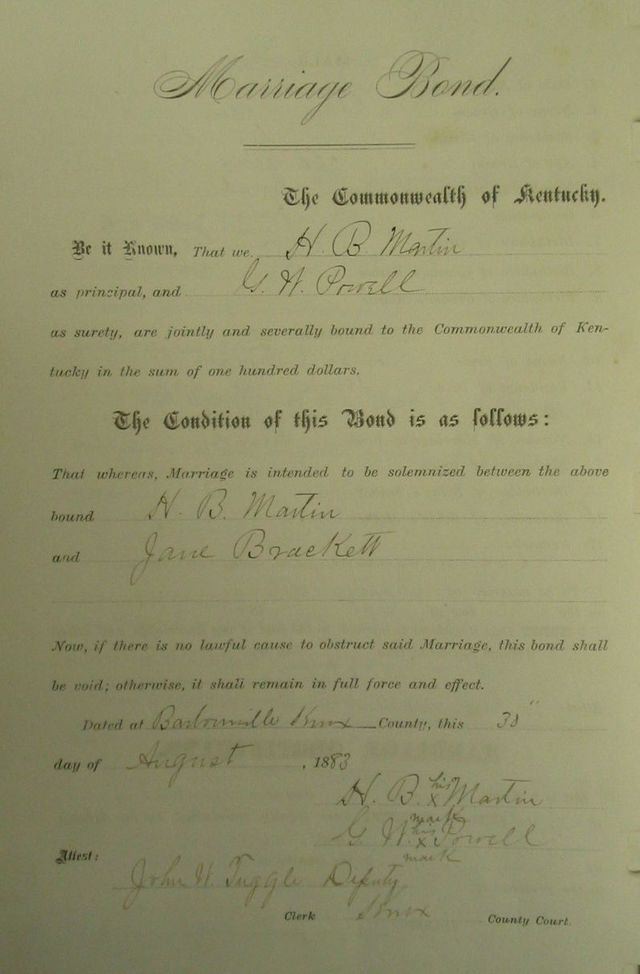 Marriage Bond.
The Commonwealth of Kentucky.
Be it Known, That we H. B. Martin
as principal, and G. W. Powell
as surety, are jointly and severally bound to the Commonwealth of Ken-
tucky in the sum of one hundred dollars.
The Condition of this Bond is as follows:
That whereas, Marriage is intended to be solemnized between the above
bound H. B. Martin
and Jane Brackett
Now, if there is no lawful cause to obstruct said Marriage, this bond shall
be void; otherwise, it shall remain in full force and effect.
Dated at Barbourville Knox County, this 30"
day of August, 1883
H. B. his x mark Martin
G. W. his x mark Powell
Attest:
John W. Tuggle Deputy
Clerk Knox County Court.